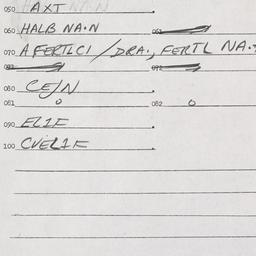 050 AXT
060 HALB NA.N 061
070 AFERTICI / DRA., FERTL NA.
071 072
080 CEJN
081 0 082 0
090 ELIF
100 CVELIF